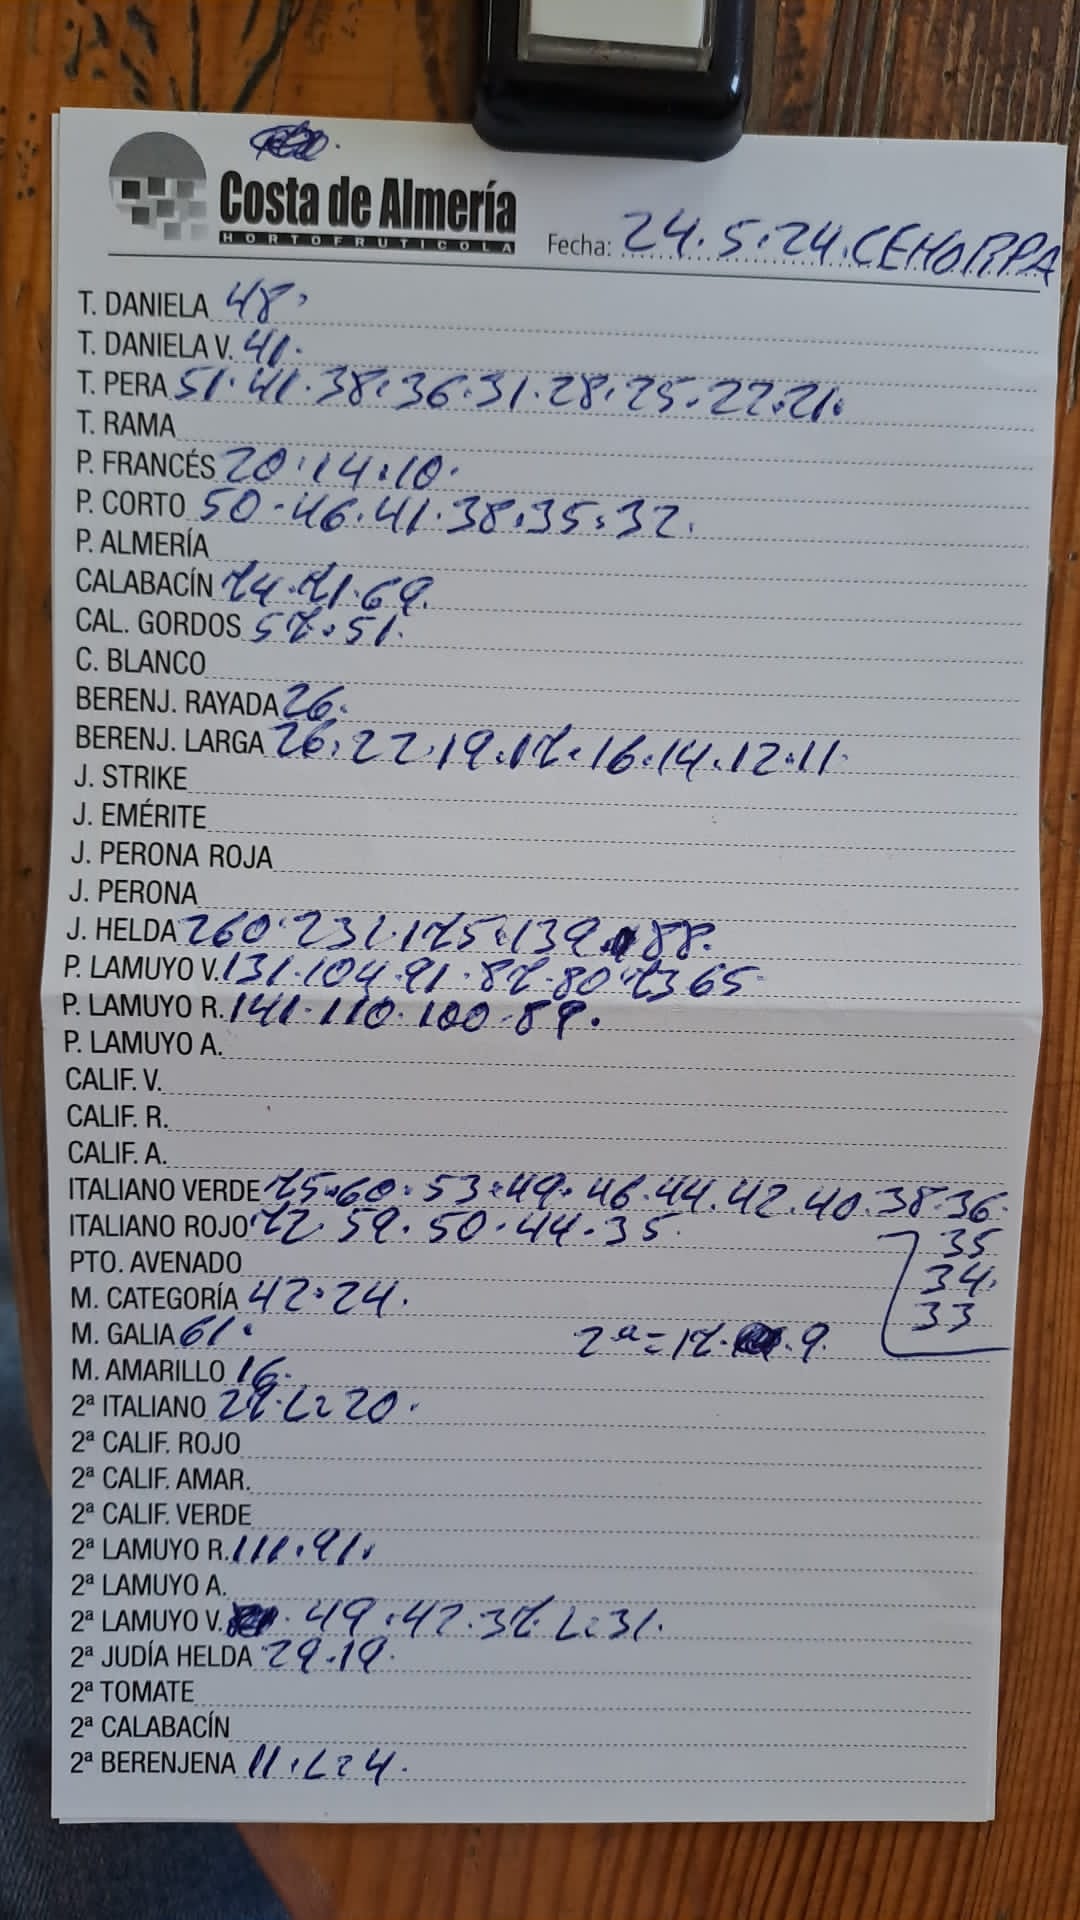 Costa de Almería
HORTOFRUTICOLA
Fecha: 24.5.24.CEHORPA
T. DANIELA 48.
T. DANIELA V. 41.
T. PERA 51.41.38.36.31.28.25.22.21.
T. RAMA
P. FRANCÉS 20.14.10.
P. CORTO 50-46.41.38.35.32.
P. ALMERÍA
CALABACÍN 74.71.69.
CAL. GORDOS 57.51.
C. BLANCO
BERENJ. RAYADA 26.
BERENJ. LARGA 26.22.19.17.16.14.12.11.
J. STRIKE
J. EMÉRITE
J. PERONA ROJA
J. PERONA
J. HELDA 260.231.175.139.88.
P. LAMUYO V. 131.104.91.87.80.73 65.
P. LAMUYO R. 141.110.100.89.
P. LAMUYO A.
CALIF. V.
CALIF. R.
CALIF. A.
ITALIANO VERDE 75.60.53.49.46.44.42.40.38.36.
35
34.
33
ITALIANO ROJO 72.59.50.44.35.
PTO. AVENADO
M. CATEGORÍA 42.24.
M. GALIA 61. 2ª=17. .9.
M. AMARILLO 16.
2ª ITALIANO 27.L=20.
2ª CALIF. ROJO
2ª CALIF. AMAR.
2ª CALIF. VERDE
2ª LAMUYO R. 111.91.
2ª LAMUYO A.
2ª LAMUYO V. .49.42.37.L=31.
2ª JUDÍA HELDA 29.19.
2ª TOMATE
2ª CALABACÍN
2ª BERENJENA 11.L=4.